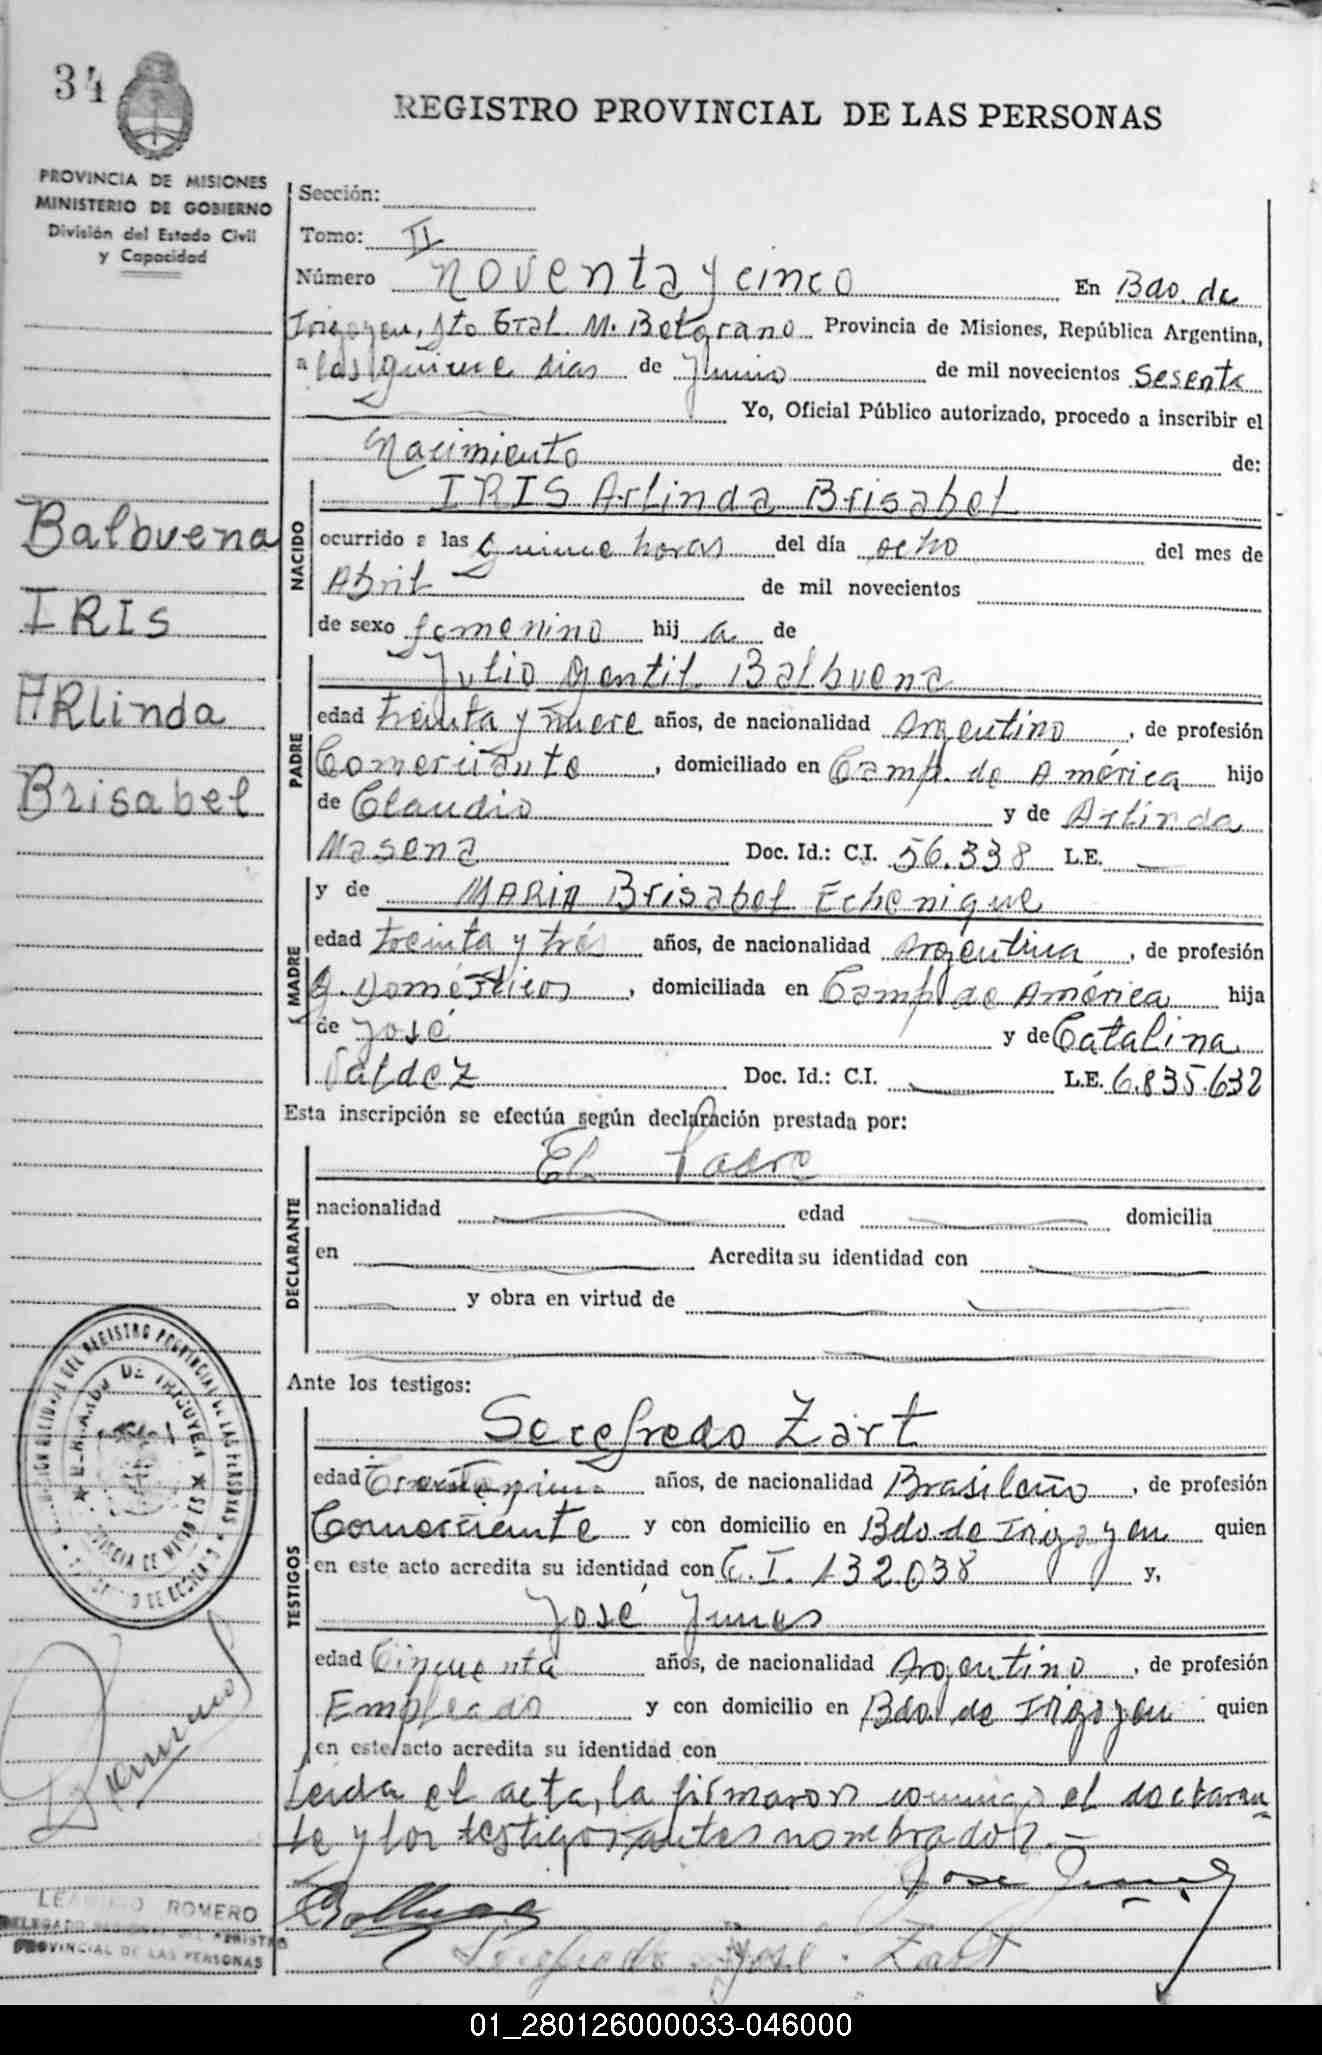 34
REGISTRO PROVINCIAL DE LAS PERSONAS
PROVINCIA DE MISIONES
MINISTERIO DE GOBIERNO
División del Estado Civil
y Capacidad
Sección:
Tomo: II
Número noventa y cinco En Bdo. de
Irigoyen, Dto Gral. M. Belgrano Provincia de Misiones, República Argentina,
a los quince dias de Junio de mil novecientos sesenta
Yo, Oficial Público autorizado, procedo a inscribir el
Nacimiento de:
Balbuena
IRIS
ARlinda
Brisabel
NACIDO
IRIS Arlinda Brisabel
ocurrido a las quince horas del día ocho del mes de
Abril de mil novecientos
de sexo femenino hij a de
PADRE
Julio Gentil Balbuena
edad treinta y nueve años, de nacionalidad Argentino, de profesión
Comerciante, domiciliado en Camp. de América hijo
de Claudio y de Arlinda
Masena Doc. Id.: C.I. 56.338 L.E. —
MADRE
y de MARIA Brisabel Echenique
edad treinta y trés años, de nacionalidad Argentina, de profesión
Q. Domésticos, domiciliada en Camp. de América hija
de José y de Catalina
Valdez Doc. Id.: C.I. — L.E. 6.835.632
Esta inscripción se efectúa según declaración prestada por:
DECLARANTE
El Padre
nacionalidad edad domicilia
en Acredita su identidad con
y obra en virtud de
Ante los testigos:
TESTIGOS
Serefredo Zart
edad años, de nacionalidad Brasileño, de profesión
Comerciante y con domicilio en Bdo de Irigoyen quien
en este acto acredita su identidad con C.I. 132.038 y,
José Junes
edad Cincuenta años, de nacionalidad Argentino, de profesión
Empleado y con domicilio en Bdo. de Irigoyen quien
en este acto acredita su identidad con
Leida el acta, la firmaron conmigo el declaran-
te y los testigos antes nombrados.—
José
José Zart
ROMERO
PROVINCIAL DE LAS PERSONAS
01_280126000033-046000